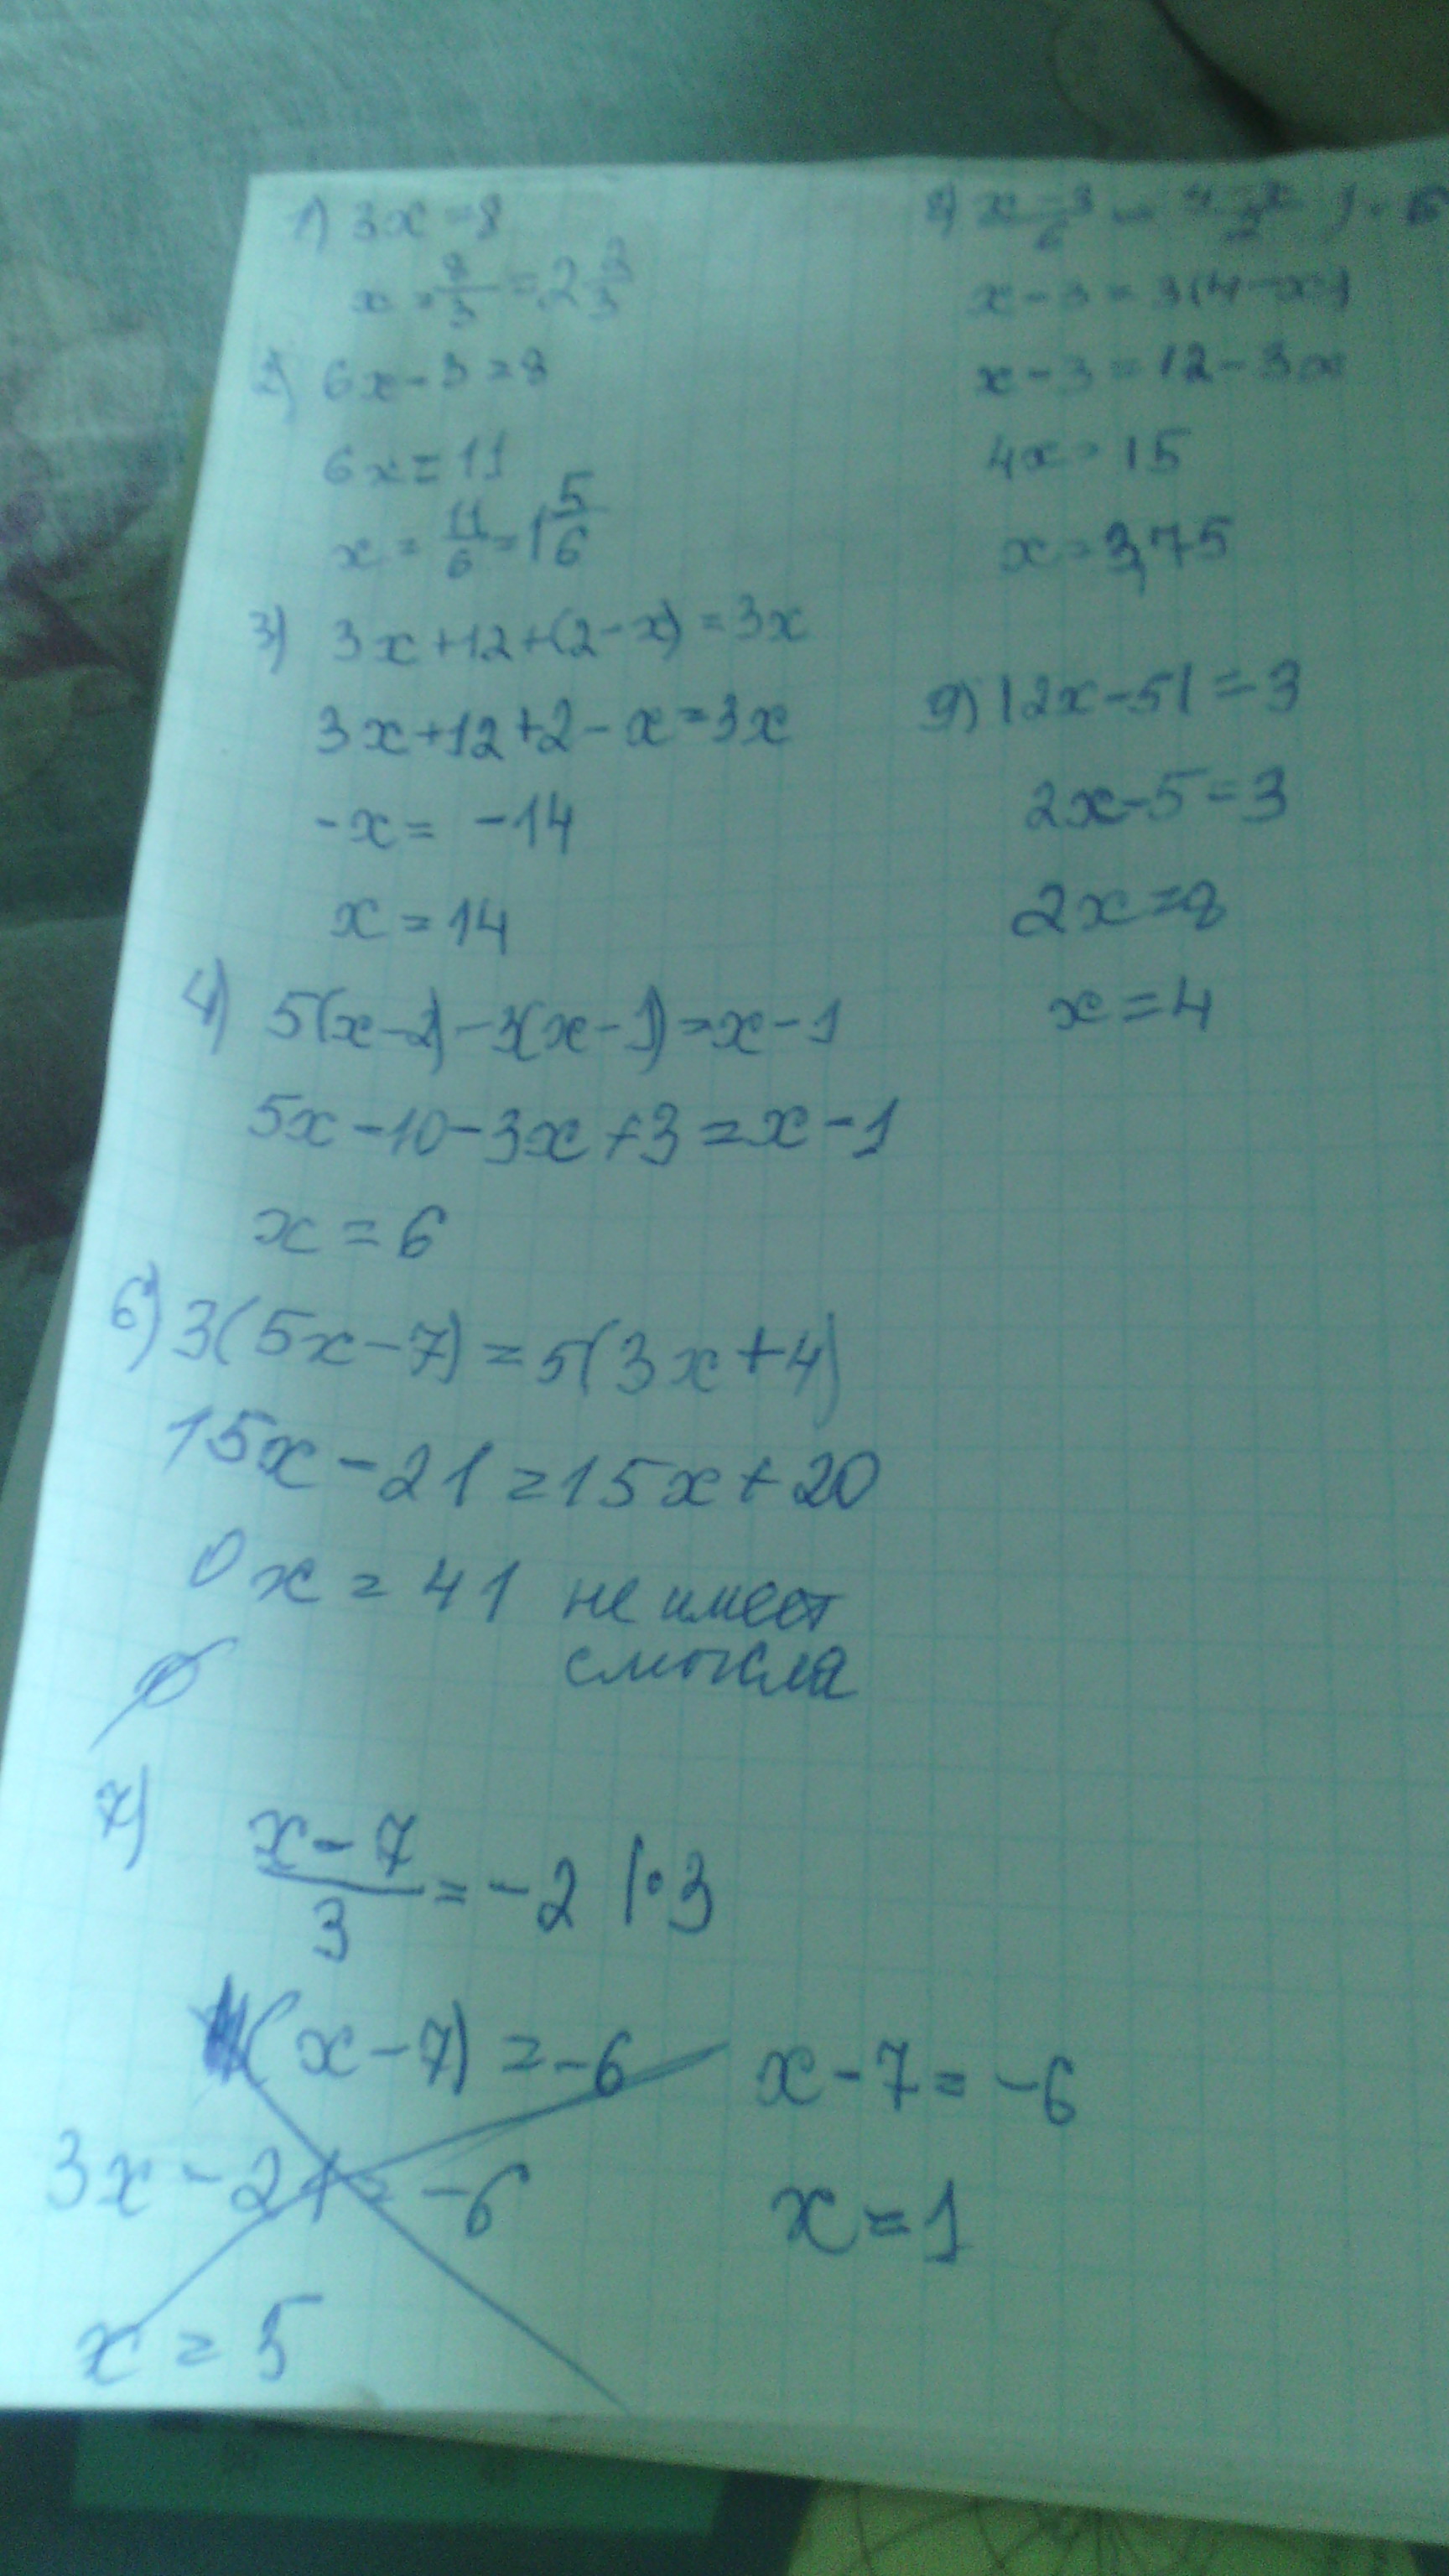 1) 3x = 8
x = 8/3 = 2 2/3
2) 6x - 3 = 8
6x = 11
x = 11/6 = 1 5/6
3) 3x + 12 + (2 - x) = 3x
3x + 12 + 2 - x = 3x
-x = -14
x = 14
4) 5(x - 2) - 3(x - 1) = x - 1
5x - 10 - 3x + 3 = x - 1
x = 6
6) 3(5x - 7) = 5(3x + 4)
15x - 21 = 15x + 20
0x = 41 не имеет
смысла
∅
7) (x - 7)/3 = -2 | · 3
(x - 7) = -6
3x - 21 = -6
x = 5
x - 7 = -6
x = 1
8) (x - 3)/6 = (4 - x)/2 | · 6
x - 3 = 3(4 - x)
x - 3 = 12 - 3x
4x = 15
x = 3,75
9) |2x - 5| = 3
2x - 5 = 3
2x = 8
x = 4